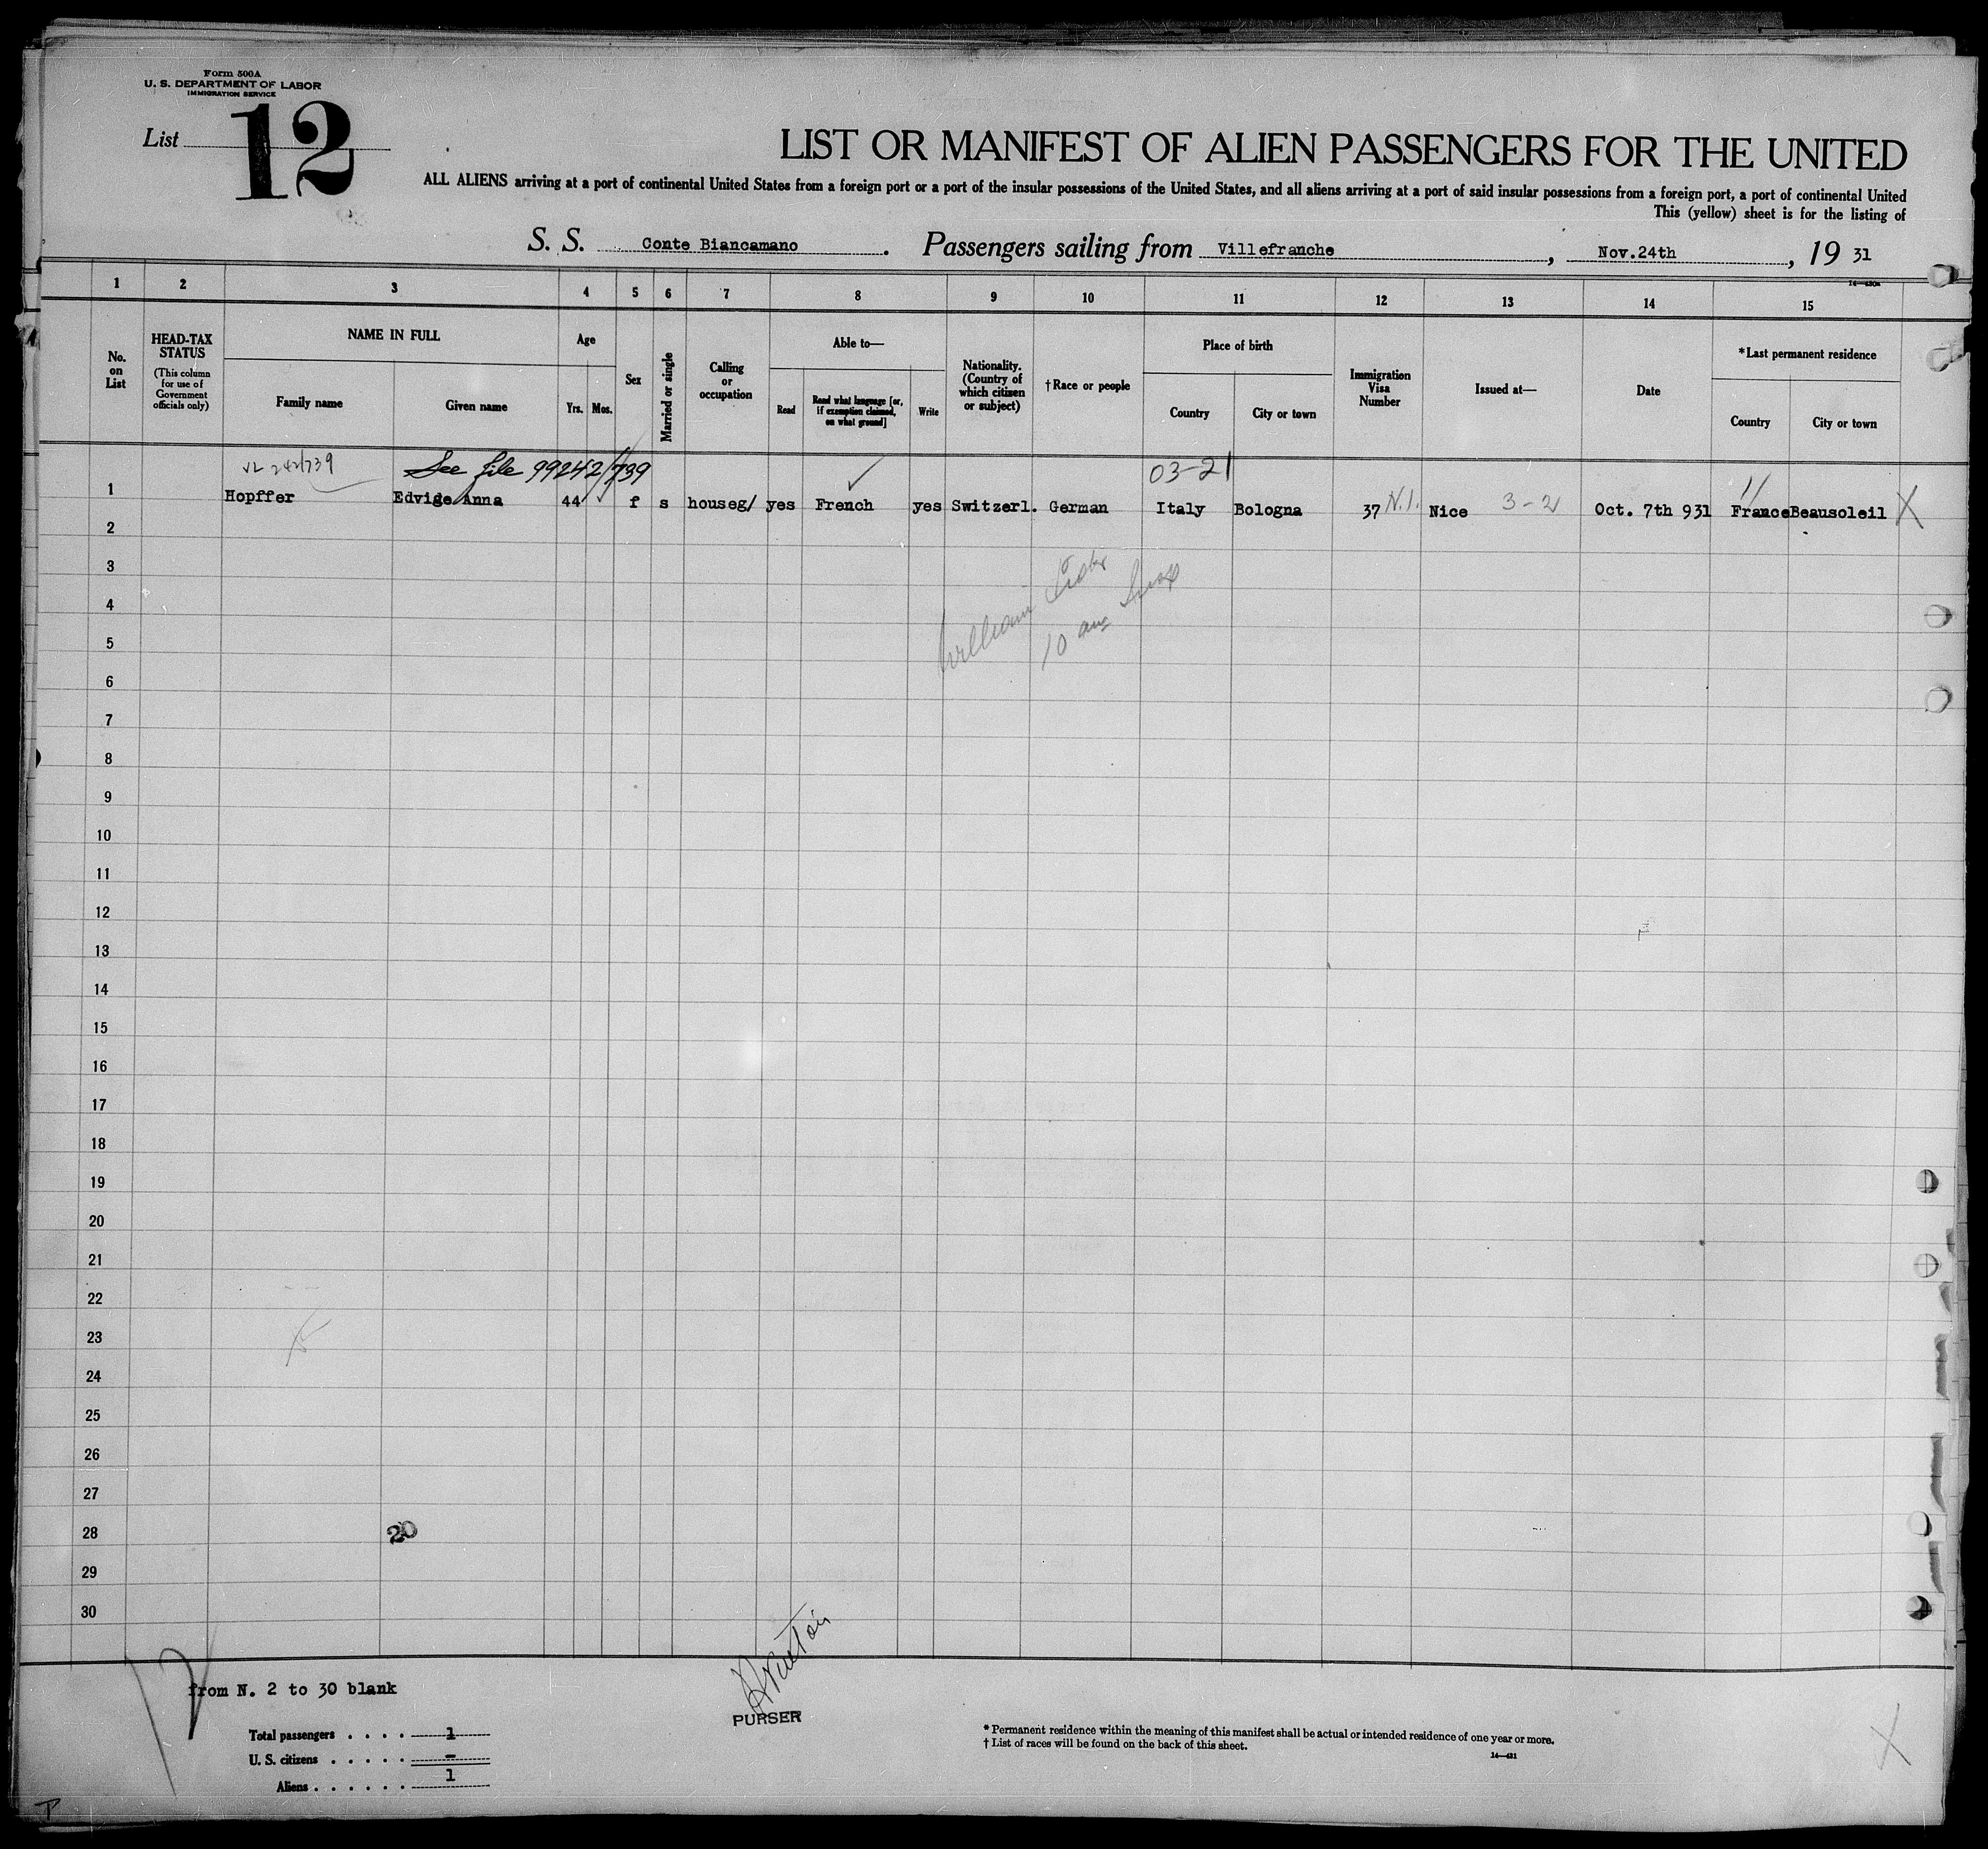 Form 500A
U. S. DEPARTMENT OF LABOR
IMMIGRATION SERVICE
List 12
LIST OR MANIFEST OF ALIEN PASSENGERS FOR THE UNITED
ALL ALIENS arriving at a port of continental United States from a foreign port or a port of the insular possessions of the United States, and all aliens arriving at a port of said insular possessions from a foreign port, a port of continental United
This (yellow) sheet is for the listing of
S. S. Conte Biancamano. Passengers sailing from Villefranche, Nov.24th, 19 31
1 2 3 4 5 6 7 8 9 10 11 12 13 14 15
No. on List
HEAD-TAX STATUS
(This column for use of Government officials only)
NAME IN FULL
Family name
Given name
Age
Yrs. Mos.
Sex
Married or single
Calling or occupation
Able to—
Read
Read what language [or, if exemption claimed, on what ground]
Write
Nationality. (Country of which citizen or subject)
†Race or people
Place of birth
Country
City or town
Immigration Visa Number
Issued at—
Date
*Last permanent residence
Country
City or town
242/739 See file 99242/739 03-21
1 Hopffer Edvige Anna 44 f s houseg/ yes French yes Switzerl. German Italy Bologna 37 N.I. Nice 3-2 Oct. 7th 931 France Beausoleil X
2
3
4
William
10 am
5
6
7
8
9
10
11
12
13
14
15
16
17
18
19
20
21
22
23
24
25
26
27
28
20
29
30
from N. 2 to 30 blank
Total passengers . . . . 1
U. S. citizens . . . . . –
Aliens . . . . . . 1
PURSER
* Permanent residence within the meaning of this manifest shall be actual or intended residence of one year or more.
† List of races will be found on the back of this sheet.
14—431
X